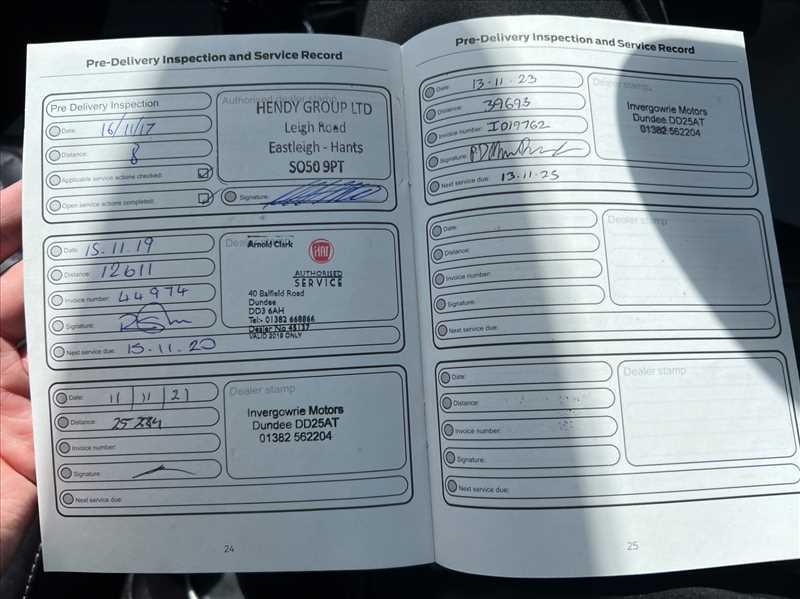 Pre-Delivery Inspection and Service Record
Pre Delivery Inspection
Date: 16/11/17
Distance: 8
Applicable service actions checked:
Open service actions completed:
Authorised dealer stamp
HENDY GROUP LTD
Leigh Road
Eastleigh - Hants
SO50 9PT
Signature:
Date: 15.11.19
Distance: 12611
Invoice number: 44974
Signature:
Next service due: 15.11.20
Arnold Clark
FIAT
AUTHORISED
SERVICE
40 Balfield Road
Dundee
DD3 6AH
Tel:- 01382 668866
Dealer No 48137
VALID 2019 ONLY
Date: 11/11/21
Distance:
Invoice number:
Signature:
Next service due:
Dealer stamp
Invergowrie Motors
Dundee DD25AT
01382 562204
24
Pre-Delivery Inspection and Service Record
Date: 13.11.23
Distance: 39693
Invoice number: I019762
Signature:
Next service due: 13.11.25
Dealer stamp
Invergowrie Motors
Dundee DD25AT
01382 562204
Date:
Distance:
Invoice number:
Signature:
Next service due:
Dealer stamp
Date:
Distance:
Invoice number:
Signature:
Next service due:
Dealer stamp
25